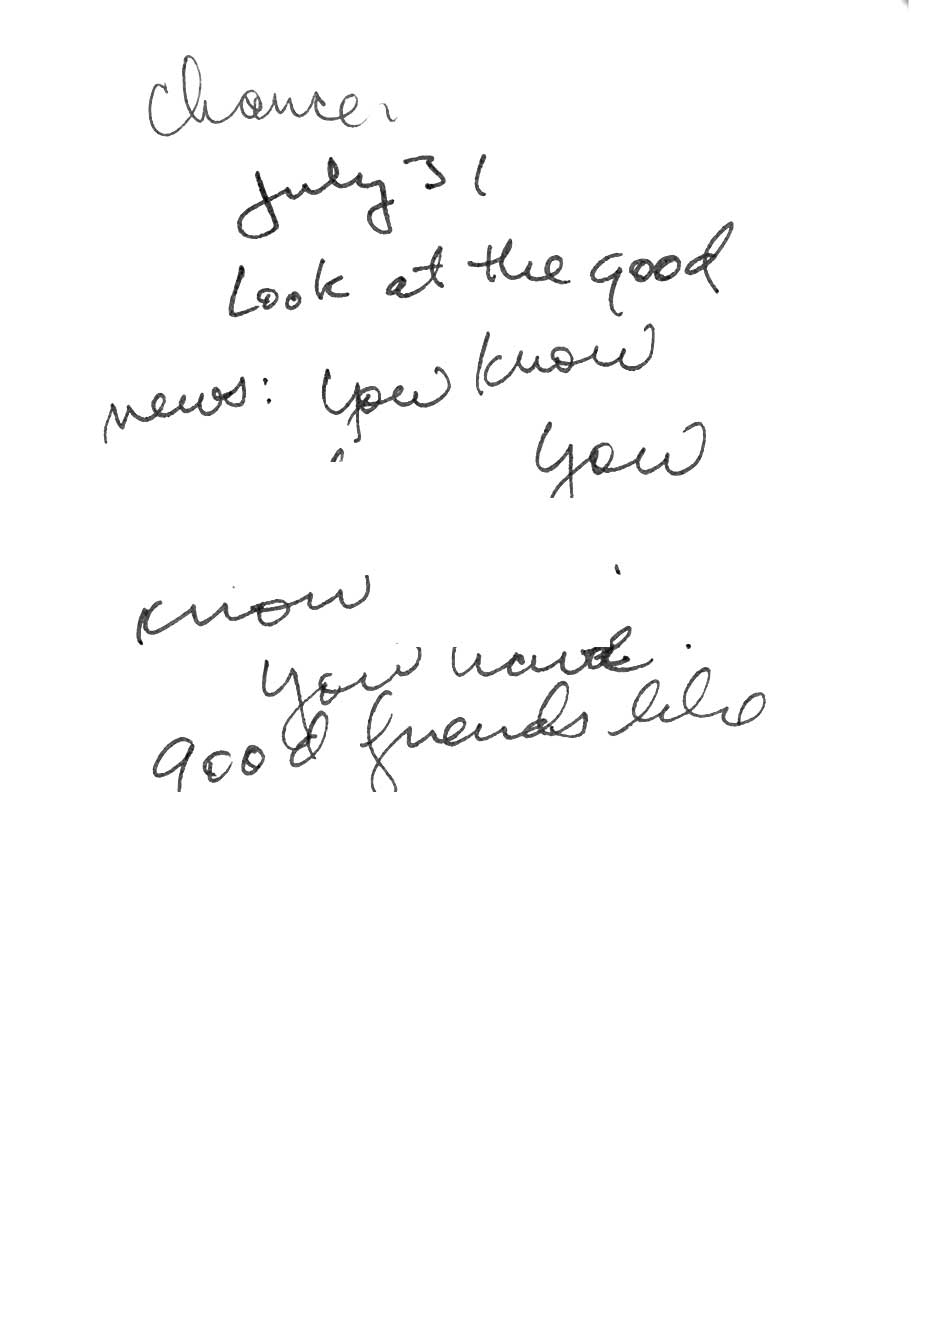 Chance.
July 31
Look at the good
news: you know
you
know
you have
good friends like